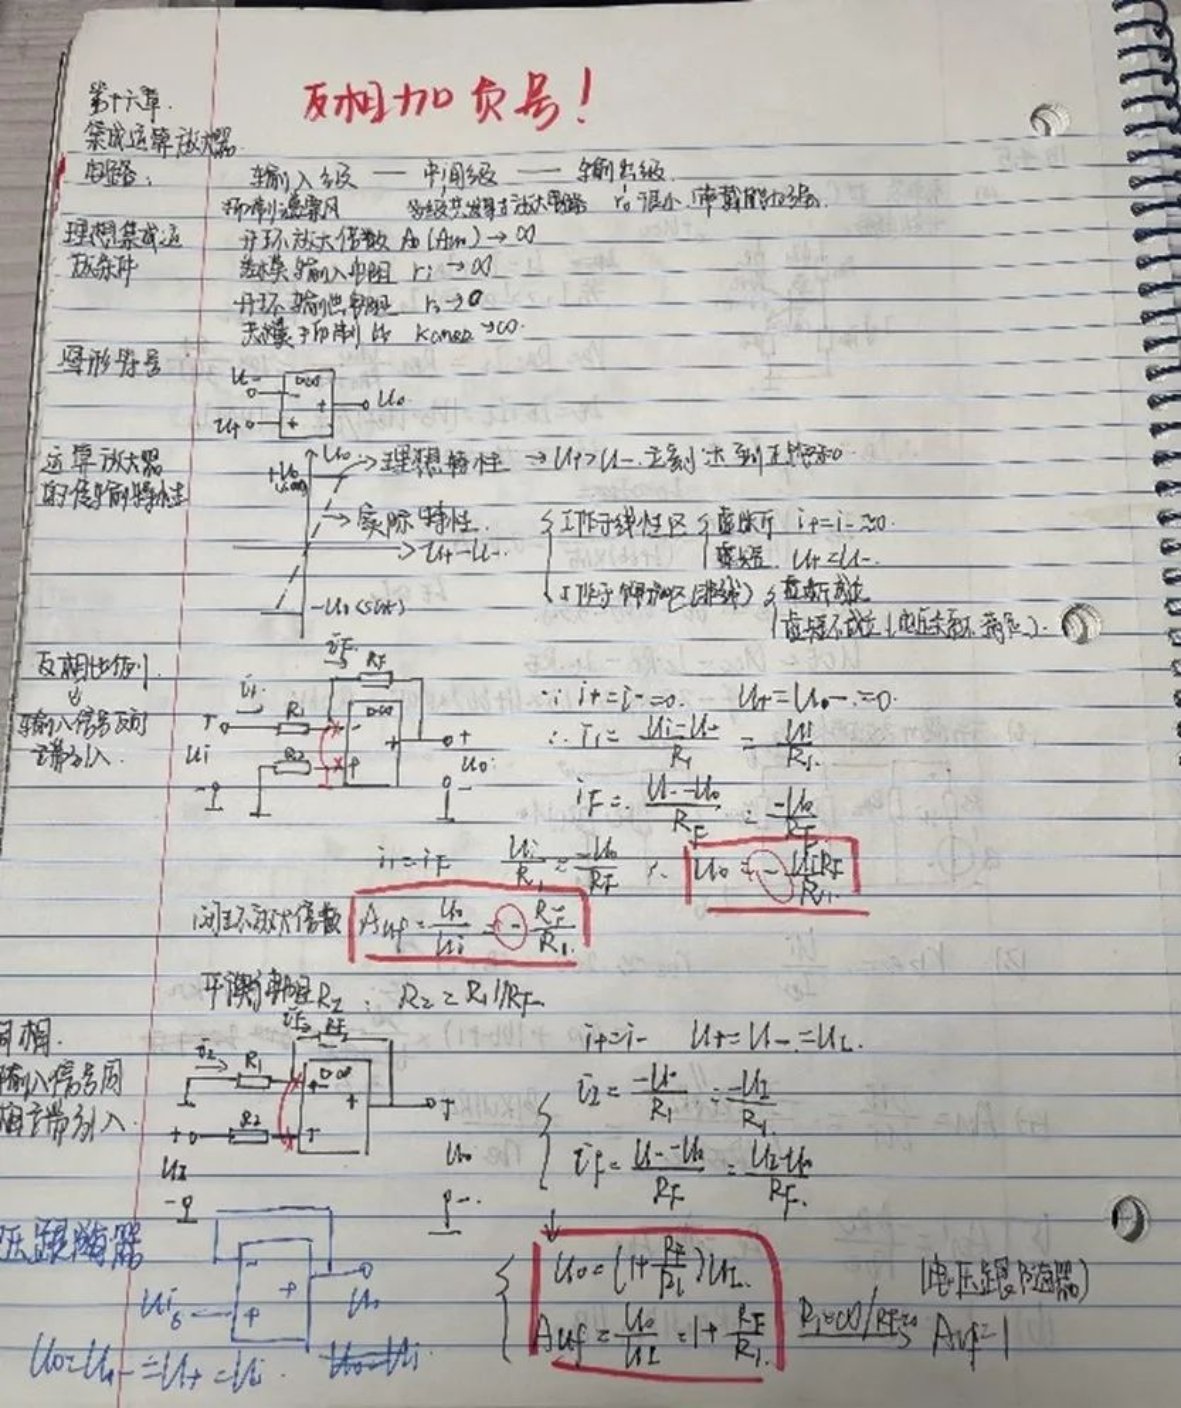 反相加负号！
第十六章.
集成运算放大器.
电路： 输入级 — 中间级 — 输出级.
抑制零漂 多级共发射方放大电路 ro很小.带载能力强.
理想集成运 开环放大倍数 Ao(Auo)→∞
放条件 差模输入电阻 ri→∞
开环输出电阻 ro→0
共模抑制比 KCMRR→∞.
图形符号
U- - ▷∞ + Uo
U+ +
运算放大器
的传输特性
Uo
+Uo(sat) 理想特性 → U+>U- 立刻达到正饱和.
实际特性.
U+-U-.
-Uo(sat)
工作于线性区 虚断 i+=i-≈0.
虚短. U+=U-.
工作于饱和区(非线) 虚断成立
虚短不成立(电压关系不满足).
反相比例.
输入信号反向
端引入.
iF RF
i1 R1 - ▷∞ +
Ui R2 + Uo
∵ i+=i-=0. U+=U-=0.
∴ i1= Ui-U-/R1 = Ui/R1.
iF= U--Uo/RF = -Uo/RF
i1=iF Ui/R1 = -Uo/RF ∴ Uo=-UiRF/R1.
闭环放大倍数 Auf=Uo/Ui=-RF/R1.
平衡电阻R2： R2=R1//RF.
同相.
输入信号同
相端引入.
R1 RF ▷∞ +
R2 +
UI Uo
i+=i- U+=U-=UI.
i1= -U-/R1 = -UI/R1.
iF= U--Uo/RF = UI-Uo/RF.
Uo=(1+RF/R1)UI.
Auf=Uo/UI=1+RF/R1. R1=∞/RF=0 Auf=1
(电压跟随器)
压跟随器
- + +
Ui Uo
Uo=U-=U+=Ui. Uo=Ui.